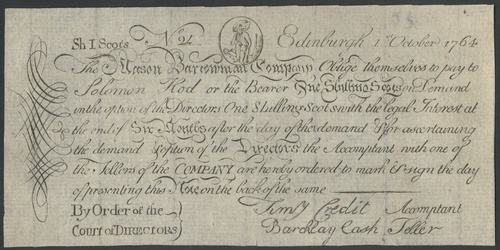 Sh I Scots No 21 Edinburgh 1st October 1764
The Mason Barrowman Company Oblige themselves to pay to
Solomon Hod or the Bearer One Shilling Scots on Demand
in the option of the Directors One Shilling Scots with the legal Interest at
the end of Six Months after the day of the demand & for ascertaining
the demand & option of the Directors the Accomptant with one of
the Tellers of the COMPANY are hereby ordered to mark & sign the day
of presenting this Note on the back of the same
By Order of the Timy Credit Accomptant
COURT of DIRECTORS Barclay Cash Teller